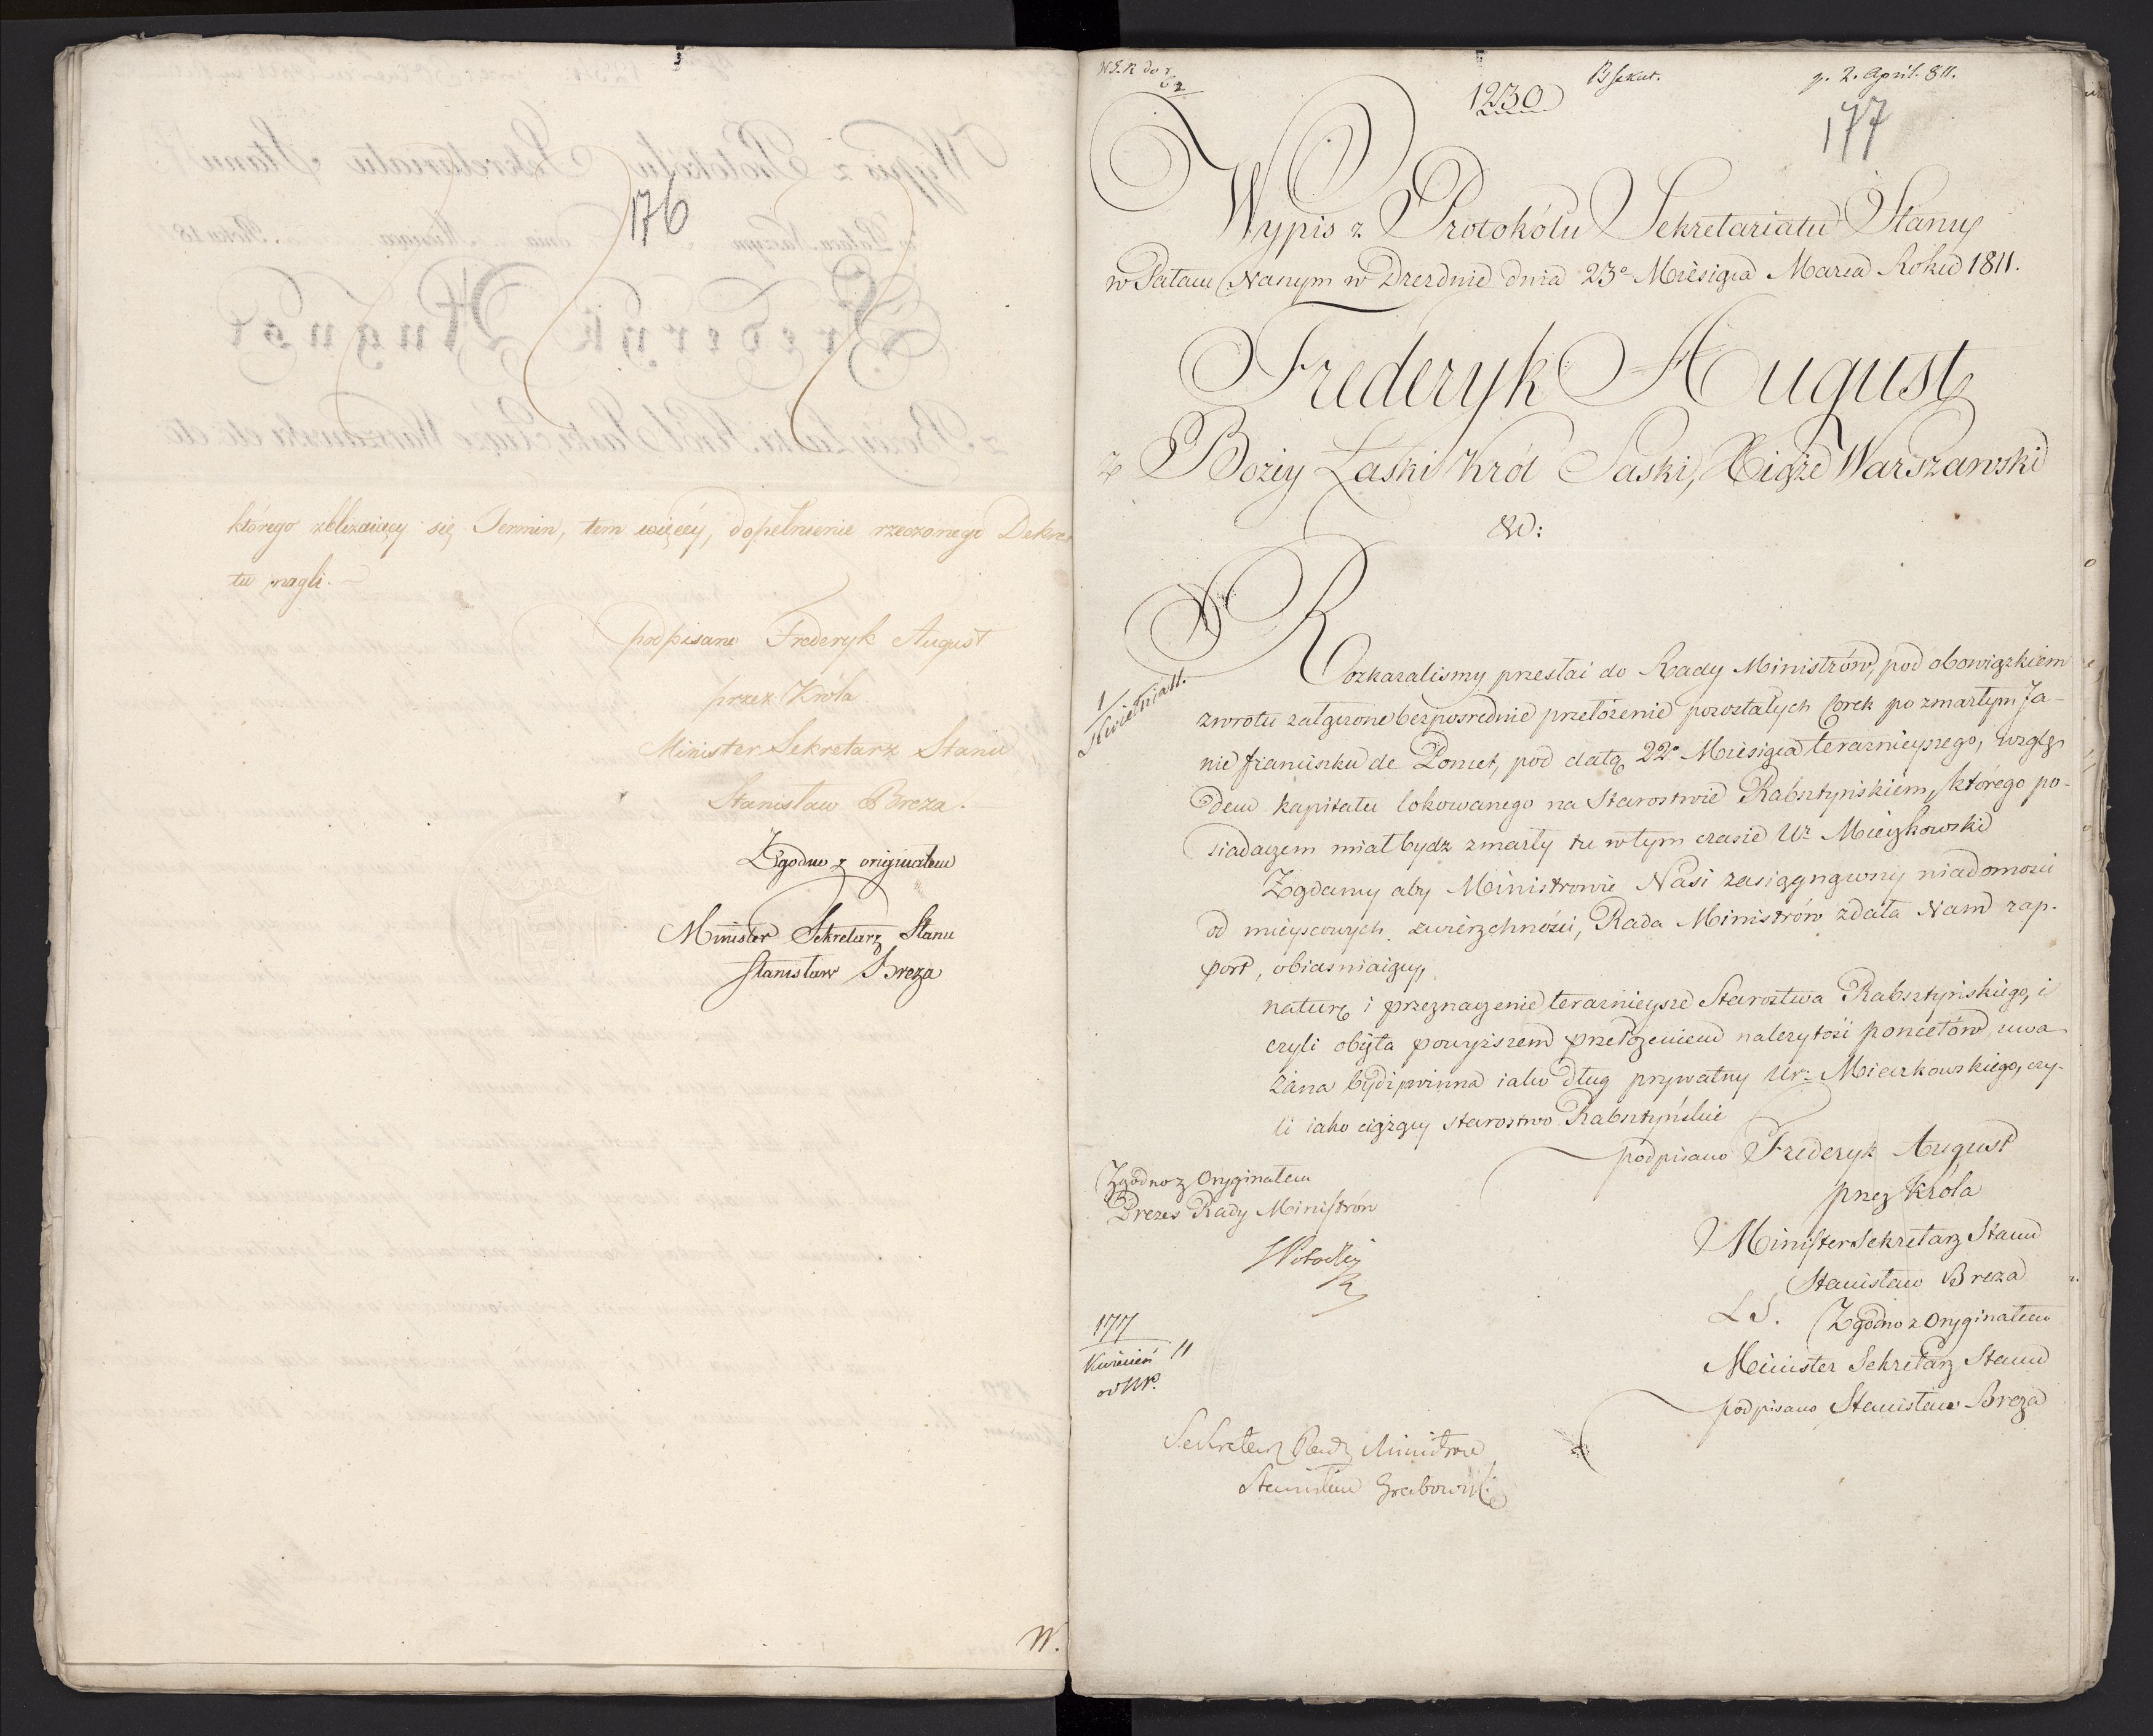 176
którego zbliżaiący się Termin, tem więcéy, dopełnienie rzeczonego Dekre
tu nagli.
podpisano Frederyk August
przez Króla
Minister Sekretarz Stanu
Stanisław Breza.
Zgodno z originałem
Minister Sekretarz Stanu
Stanisław Breza
W.
1230
g. 2. April. 811.
177
Wypis z Protokółu Sekretariatu Stanu
w Pałacu Naszym w Dreznie dnia 23º Miesiąca Marca Roku 1811.
Frederyk August
z Bożey Łaski Król Saski, Xiąże Warszawski
&c:
1/Kwietnia 11.
Rozkazalismy przesłać do Rady Ministrów, pod obowiązkiem
zwrotu załączone bezpośrednie przełożenie pozostałych Corek po zmarłym Ja-
nie Franciszku de Poncet, pod datą 22º Miesiąca teraznieyszego, wzglę
dem kapitału lokowanego na Starostwie Rabsztyńskiém, którego po-
siadaczem miał bydz zmarły tu w tym czasie Ur. Mieczkowski
Żądamy aby Ministrowie Nasi zasiągnąwszy wiadomości
od mieyscowych zwierzchności, Rada Ministrów zdała Nam rap-
port, obiasniaiący,
naturę i przeznaczenie teraznieysze Starostwa Rabsztyńskiego, i
czyli obięta powyższem przełożeniem należytość Poncetów uwa
żana bydź powinna iako dług prywatny Ur: Mieczkowskiego, czy-
li iako ciążący Starostwo Rabsztyńskie
podpisano Frederyk August
przez Króla
Minister Sekretarz Stanu
Stanisław Breza
L.S. Zgodno z Oryginałem
Minister Sekretarz Stanu
podpisano Stanisław Breza
Zgodno z Oryginałem
Prezes Rady Ministrów
177
Kwiecień 11
Sekretarz Rady Ministrów
Stanisław Grabowski